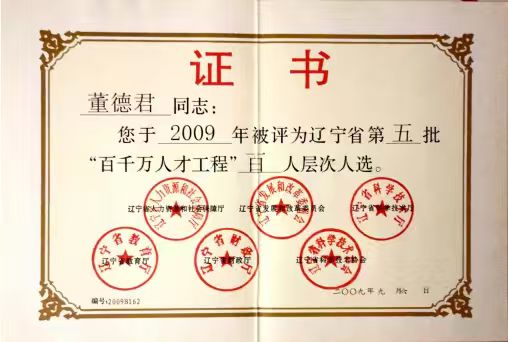 证 书
董德君 同志：
您于 2009 年被评为辽宁省第 五 批
“百千万人才工程” 百 人层次人选。
辽宁省人力资源和社会保障厅 辽宁省发展和改革委员会 辽宁省科学技术厅
辽宁省教育厅 辽宁省财政厅 辽宁省科学技术协会
二〇〇九年九月 日
编号:2009B162